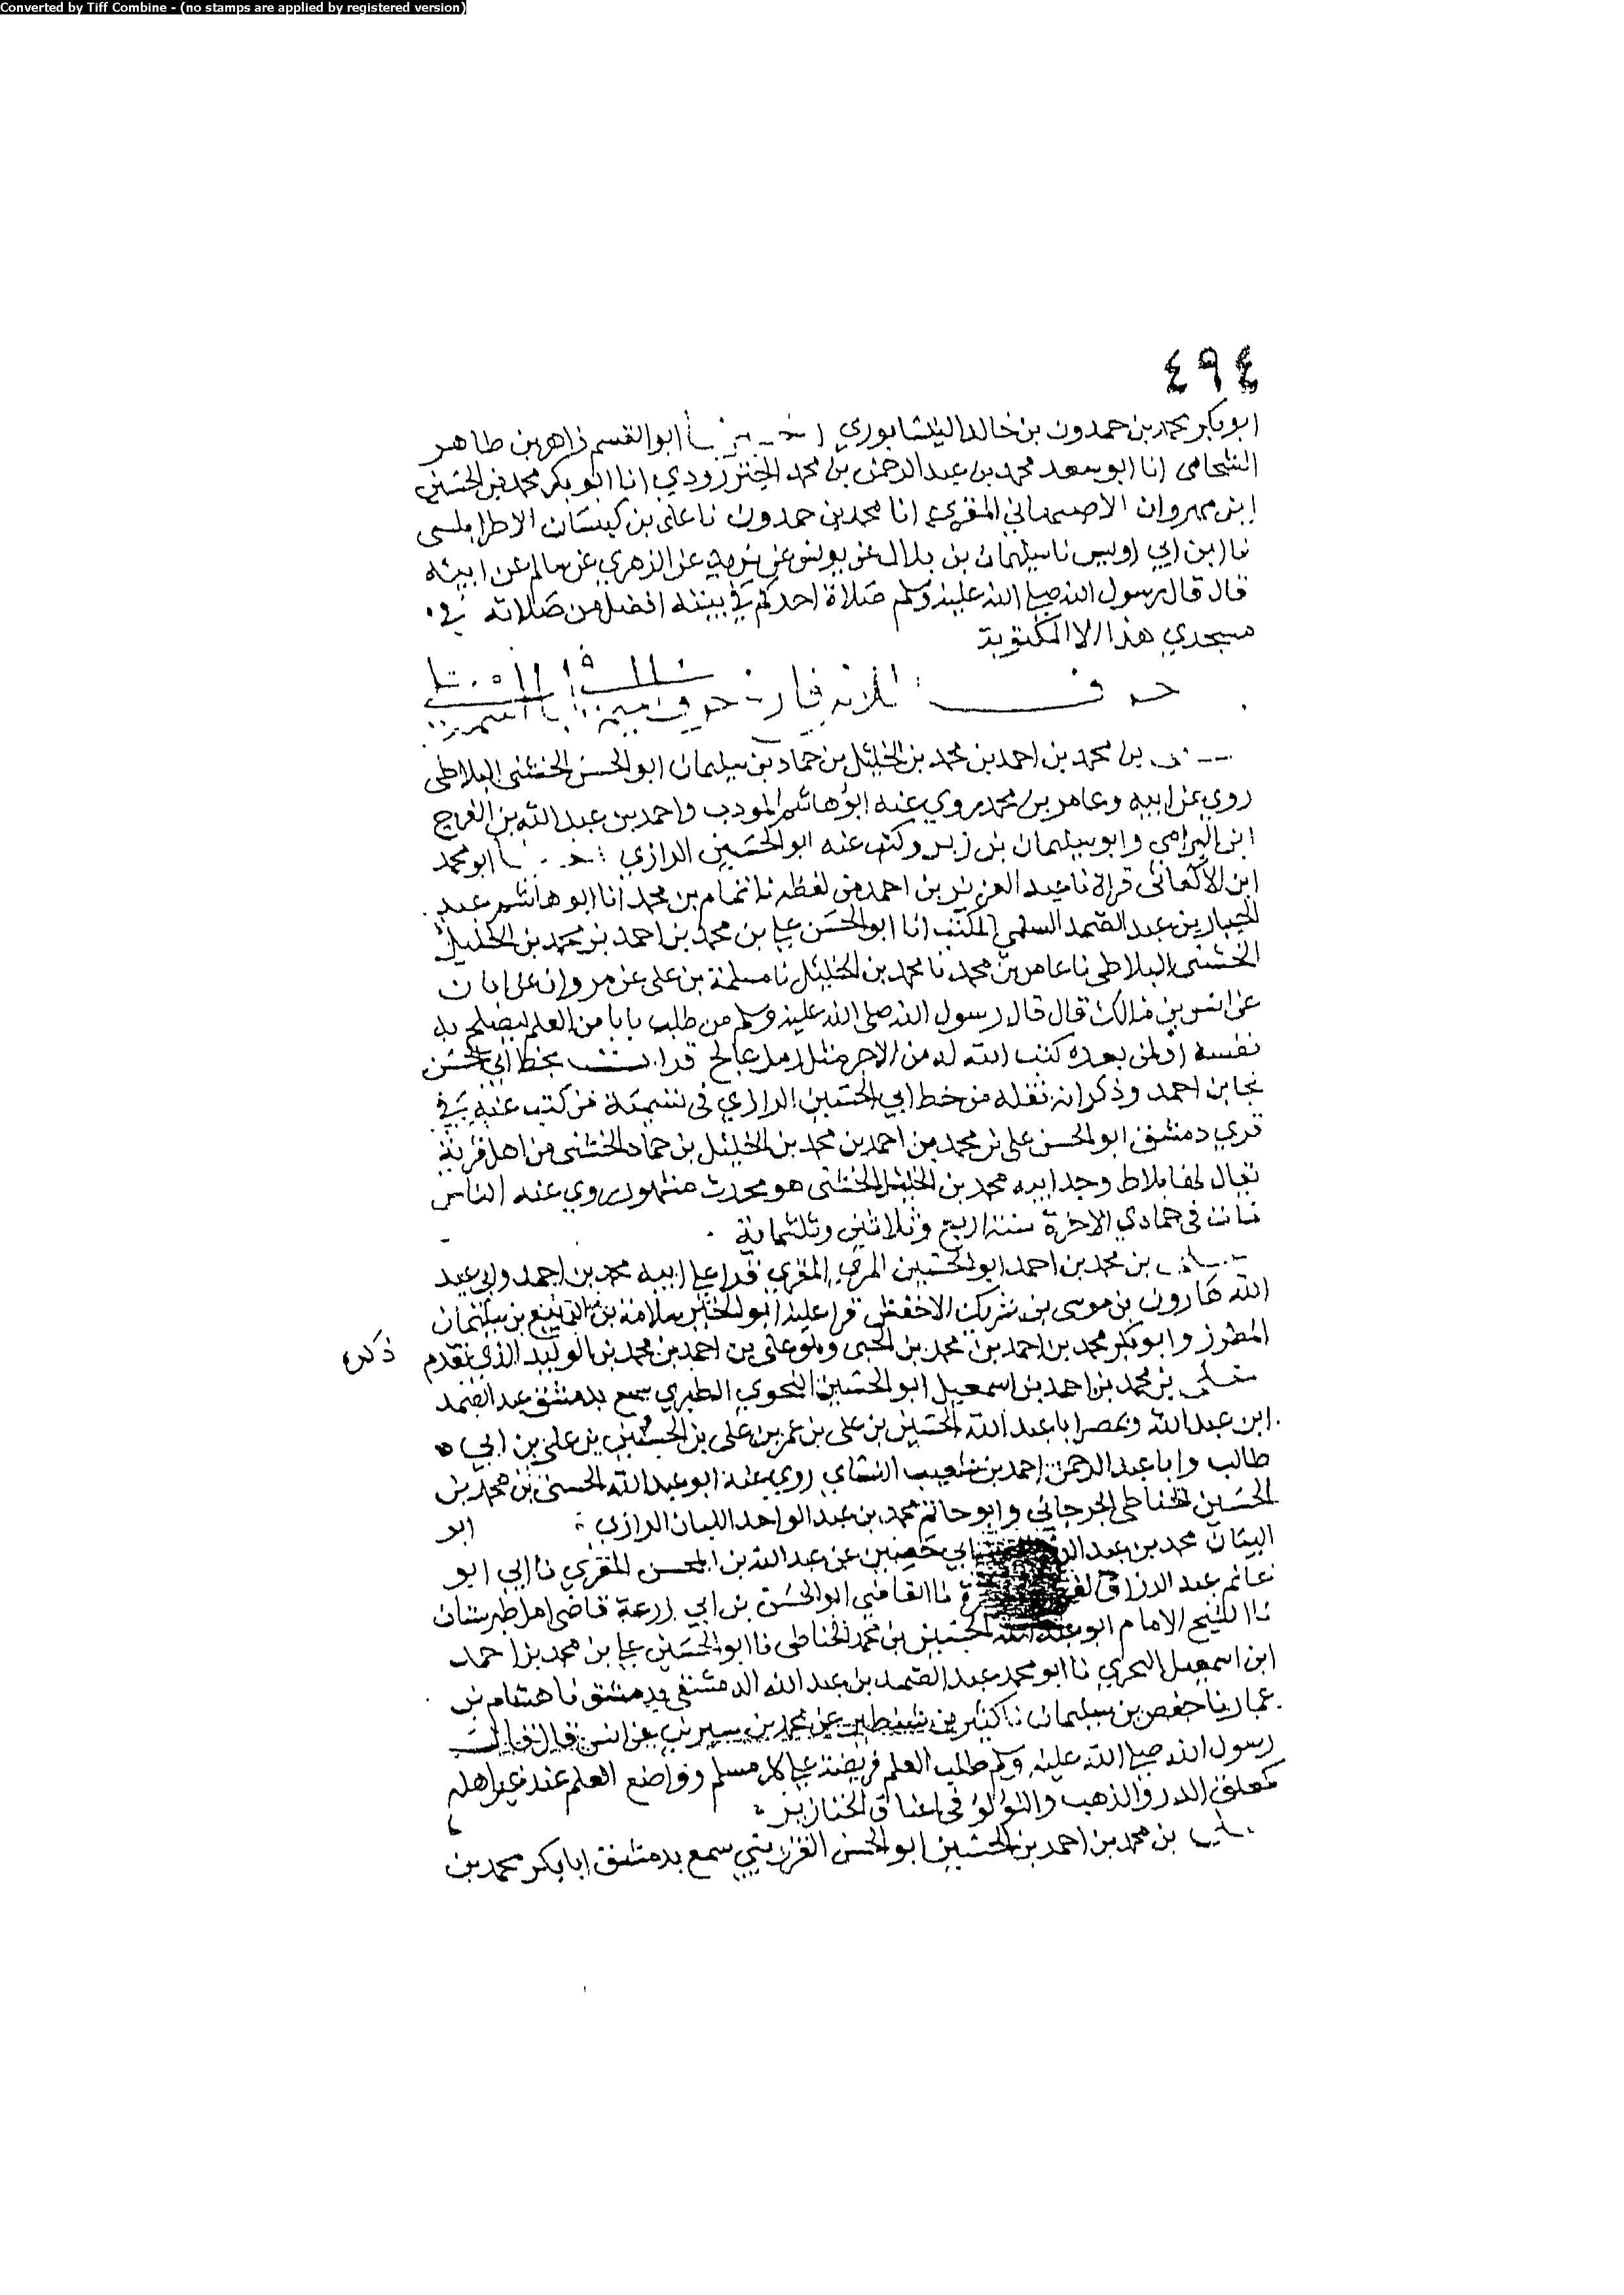 Converted by Tiff Combine - (no stamps are applied by registered version)
٤٩٤
ابو بكر محمد بن حمدون بن خالد النيسابوري ابو القسم زاهر بن طاهر
الشحامي انا ابو سعد محمد بن عبد الرحمن بن محمد الجنزرودي انا ابو بكر محمد بن الحسين
ابن مهروان الاصبهاني المقري انا محمد بن حمدون نا علي بن كيسان الاطرابلسي
نا ابن ابي اويس نا سليمان بن بلال عن يونس عن الزهري عن سالم عن ابيه
قال قال رسول الله صلى الله عليه وسلم صلاة احدكم في بيته افضل من صلاته في
مسجدي هذا الا المكتوبة
حرف
بن محمد بن احمد بن محمد بن الخليل بن حماد بن سليمان ابو الحسن الخشني البلاطي
روي عن ابيه وعامر بن محمد روي عنه ابو هاشم المودب واحمد بن عبد الله بن الفرج
ابن البرامي وابو سليمان بن زبر وكتب عنه ابو الحسين الرازي ابو محمد
ابن الاكفاني قراة نا عبد العزيز بن احمد من لفظه نا تمام بن محمد انا ابو هاشم عبد
الجبار بن عبد الصمد السلمي المكتب انا ابو الحسن علي بن محمد بن احمد بن محمد بن الخليل
الخشني البلاطي نا عامر بن محمد نا محمد بن الخليل نا مسلمة بن علي عن مروان عن ابان
عن انس بن مالك قال قال رسول الله صلى الله عليه وسلم من طلب بابا من العلم ليصلح به
نفسه او لمن بعده كتب الله له من الاجر مثل رمل عالج قرات بخط ابي الحسن
نجا بن احمد وذكر انه نقله من خط ابي الحسين الرازي في تسمية من كتب عنه في
قري دمشق ابو الحسن علي بن محمد بن احمد بن محمد بن الخليل بن حماد الخشني من اهل قرية
يقال لها بلاط وجد ابيه محمد بن الخليل الخشني هو محدث مشهور روي عنه الناس
مات في جمادي الاخرة سنة اربع وثلاثين وثلثماية
بن محمد بن احمد ابو الحسين المري المقري قرا علي ابيه محمد بن احمد وابي عبد
الله هارون بن موسى بن شريك الاخفش قرا عليه ابو سلامة بن الربيع بن سليمان
المطرز وابو بكر محمد بن احمد بن محمد بن الجبي وهو علي بن احمد بن محمد بن الوليد الذي تقدم ذكره
علي بن محمد بن احمد بن اسمعيل ابو الحسين النحوي الطبري سمع بدمشق عبد الصمد
ابن عبد الله وبمصر ابا عبد الله الحسين بن علي بن عمر بن علي بن الحسين بن علي بن ابي
طالب وابا عبد الرحمن احمد بن شعيب النساي روي عنه ابو عبد الله الحسين بن محمد بن
الحسين الحناطي الجرجاني وابو حاتم محمد بن عبد الواحد اللبان الرازي ابو
البيان محمد بن عبد ابي حصين عن عبد الله بن المحسن المقري نا ابي ابو
غانم عبد الرزاق نا القاضي ابو الحسن بن ابي زرعة قاضي امل طبرستان
نا الشيخ الامام ابو عبد الله الحسين بن محمد الحناطي نا ابو الحسين علي بن محمد بن احمد
ابن اسمعيل نا ابو محمد عبد الصمد بن عبد الله الدمشقي بدمشق نا هشام بن
عمار نا حفص بن سليمان نا كثير بن شنظير عن محمد بن سيرين عن انس قال قال
رسول الله صلى الله عليه وسلم طلب العلم فريضة علي كل مسلم وواضع العلم عند غير اهله
كمعلق الدر والذهب واللؤلؤ في اعناق الخنازير
علي بن محمد بن احمد بن الحسين ابو الحسن سمع بدمشق ابا بكر محمد بن